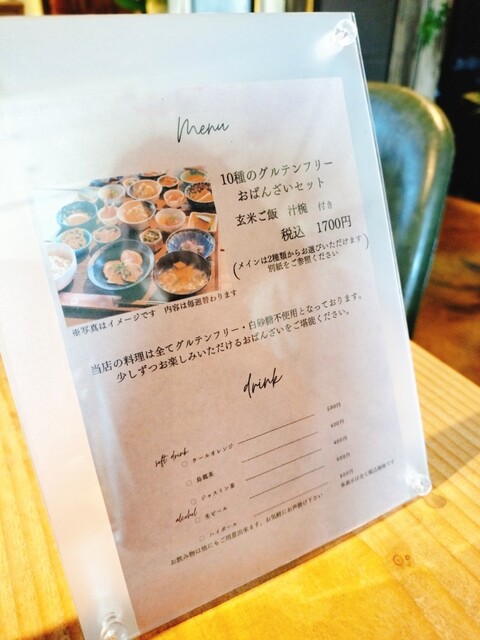 Menu
10種のグルテンフリー
おばんざいセット
玄米ご飯 汁椀 付き
税込 1700円
(メインは2種類からお選びいただけます)
別紙をご参照ください
※写真はイメージです 内容は毎週替わります
当店の料理は全てグルテンフリー・白砂糖不使用となっております。
少しずつお楽しみいただけるおばんざいをご堪能ください。
drink
soft drink
クールオレンジ
烏龍茶
ジャスミン茶
alcohol
生ビール
ハイボール
お飲み物は他にもご用意出来ます。お気軽にお声掛け下さい